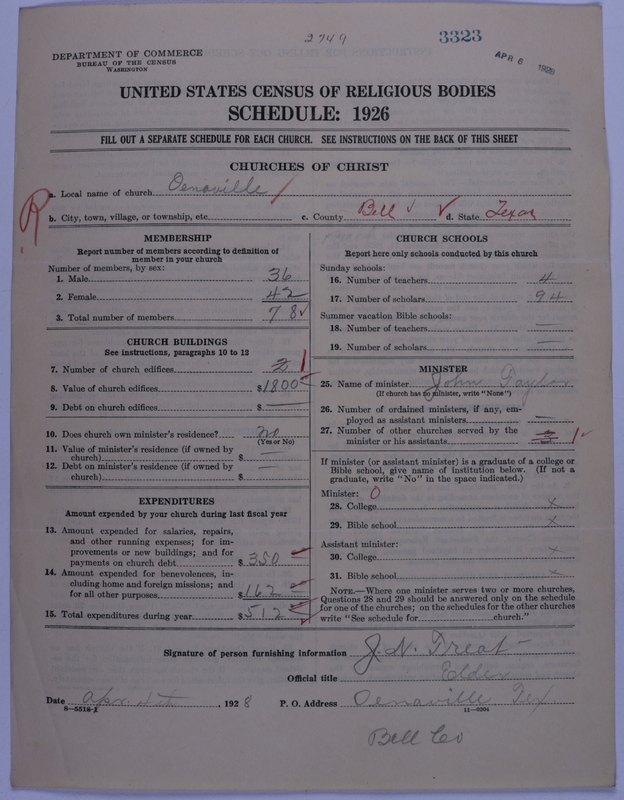 2749
3323
APR 6 1928
DEPARTMENT OF COMMERCE
BUREAU OF THE CENSUS
WASHINGTON
UNITED STATES CENSUS OF RELIGIOUS BODIES
SCHEDULE: 1926
FILL OUT A SEPARATE SCHEDULE FOR EACH CHURCH. SEE INSTRUCTIONS ON THE BACK OF THIS SHEET
CHURCHES OF CHRIST
R
a. Local name of church Oenaville
b. City, town, village, or township, etc. c. County Bell d. State Texas
MEMBERSHIP
Report number of members according to definition of
member in your church
Number of members, by sex:
1. Male 36
2. Female 42
3. Total number of members 78
CHURCH BUILDINGS
See instructions, paragraphs 10 to 12
7. Number of church edifices 1
8. Value of church edifices $1800
9. Debt on church edifices $ —
10. Does church own minister's residence? No
(Yes or No)
11. Value of minister's residence (if owned by
church) $ —
12. Debt on minister's residence (if owned by
church) $ —
EXPENDITURES
Amount expended by your church during last fiscal year
13. Amount expended for salaries, repairs,
and other running expenses; for im-
provements or new buildings; and for
payments on church debt $350
14. Amount expended for benevolences, in-
cluding home and foreign missions; and
for all other purposes $162
15. Total expenditures during year $512
CHURCH SCHOOLS
Report here only schools conducted by this church
Sunday schools:
16. Number of teachers 4
17. Number of scholars 94
Summer vacation Bible schools:
18. Number of teachers —
19. Number of scholars —
MINISTER
25. Name of minister John Taylor
(If church has no minister, write "None")
26. Number of ordained ministers, if any, em-
ployed as assistant ministers —
27. Number of other churches served by the
minister or his assistants 1
If minister (or assistant minister) is a graduate of a college or
Bible school, give name of institution below. (If not a
graduate, write "No" in the space indicated.)
Minister: O
28. College x
29. Bible school x
Assistant minister:
30. College x
31. Bible school x
NOTE.—Where one minister serves two or more churches,
Questions 28 and 29 should be answered only on the schedule
for one of the churches; on the schedules for the other churches
write "See schedule for church."
Signature of person furnishing information J. N. Treat
Official title Elder
Date Apr. 4th, 1928 P. O. Address Oenaville Tex
8—5518-I 11—9204
Bell Co